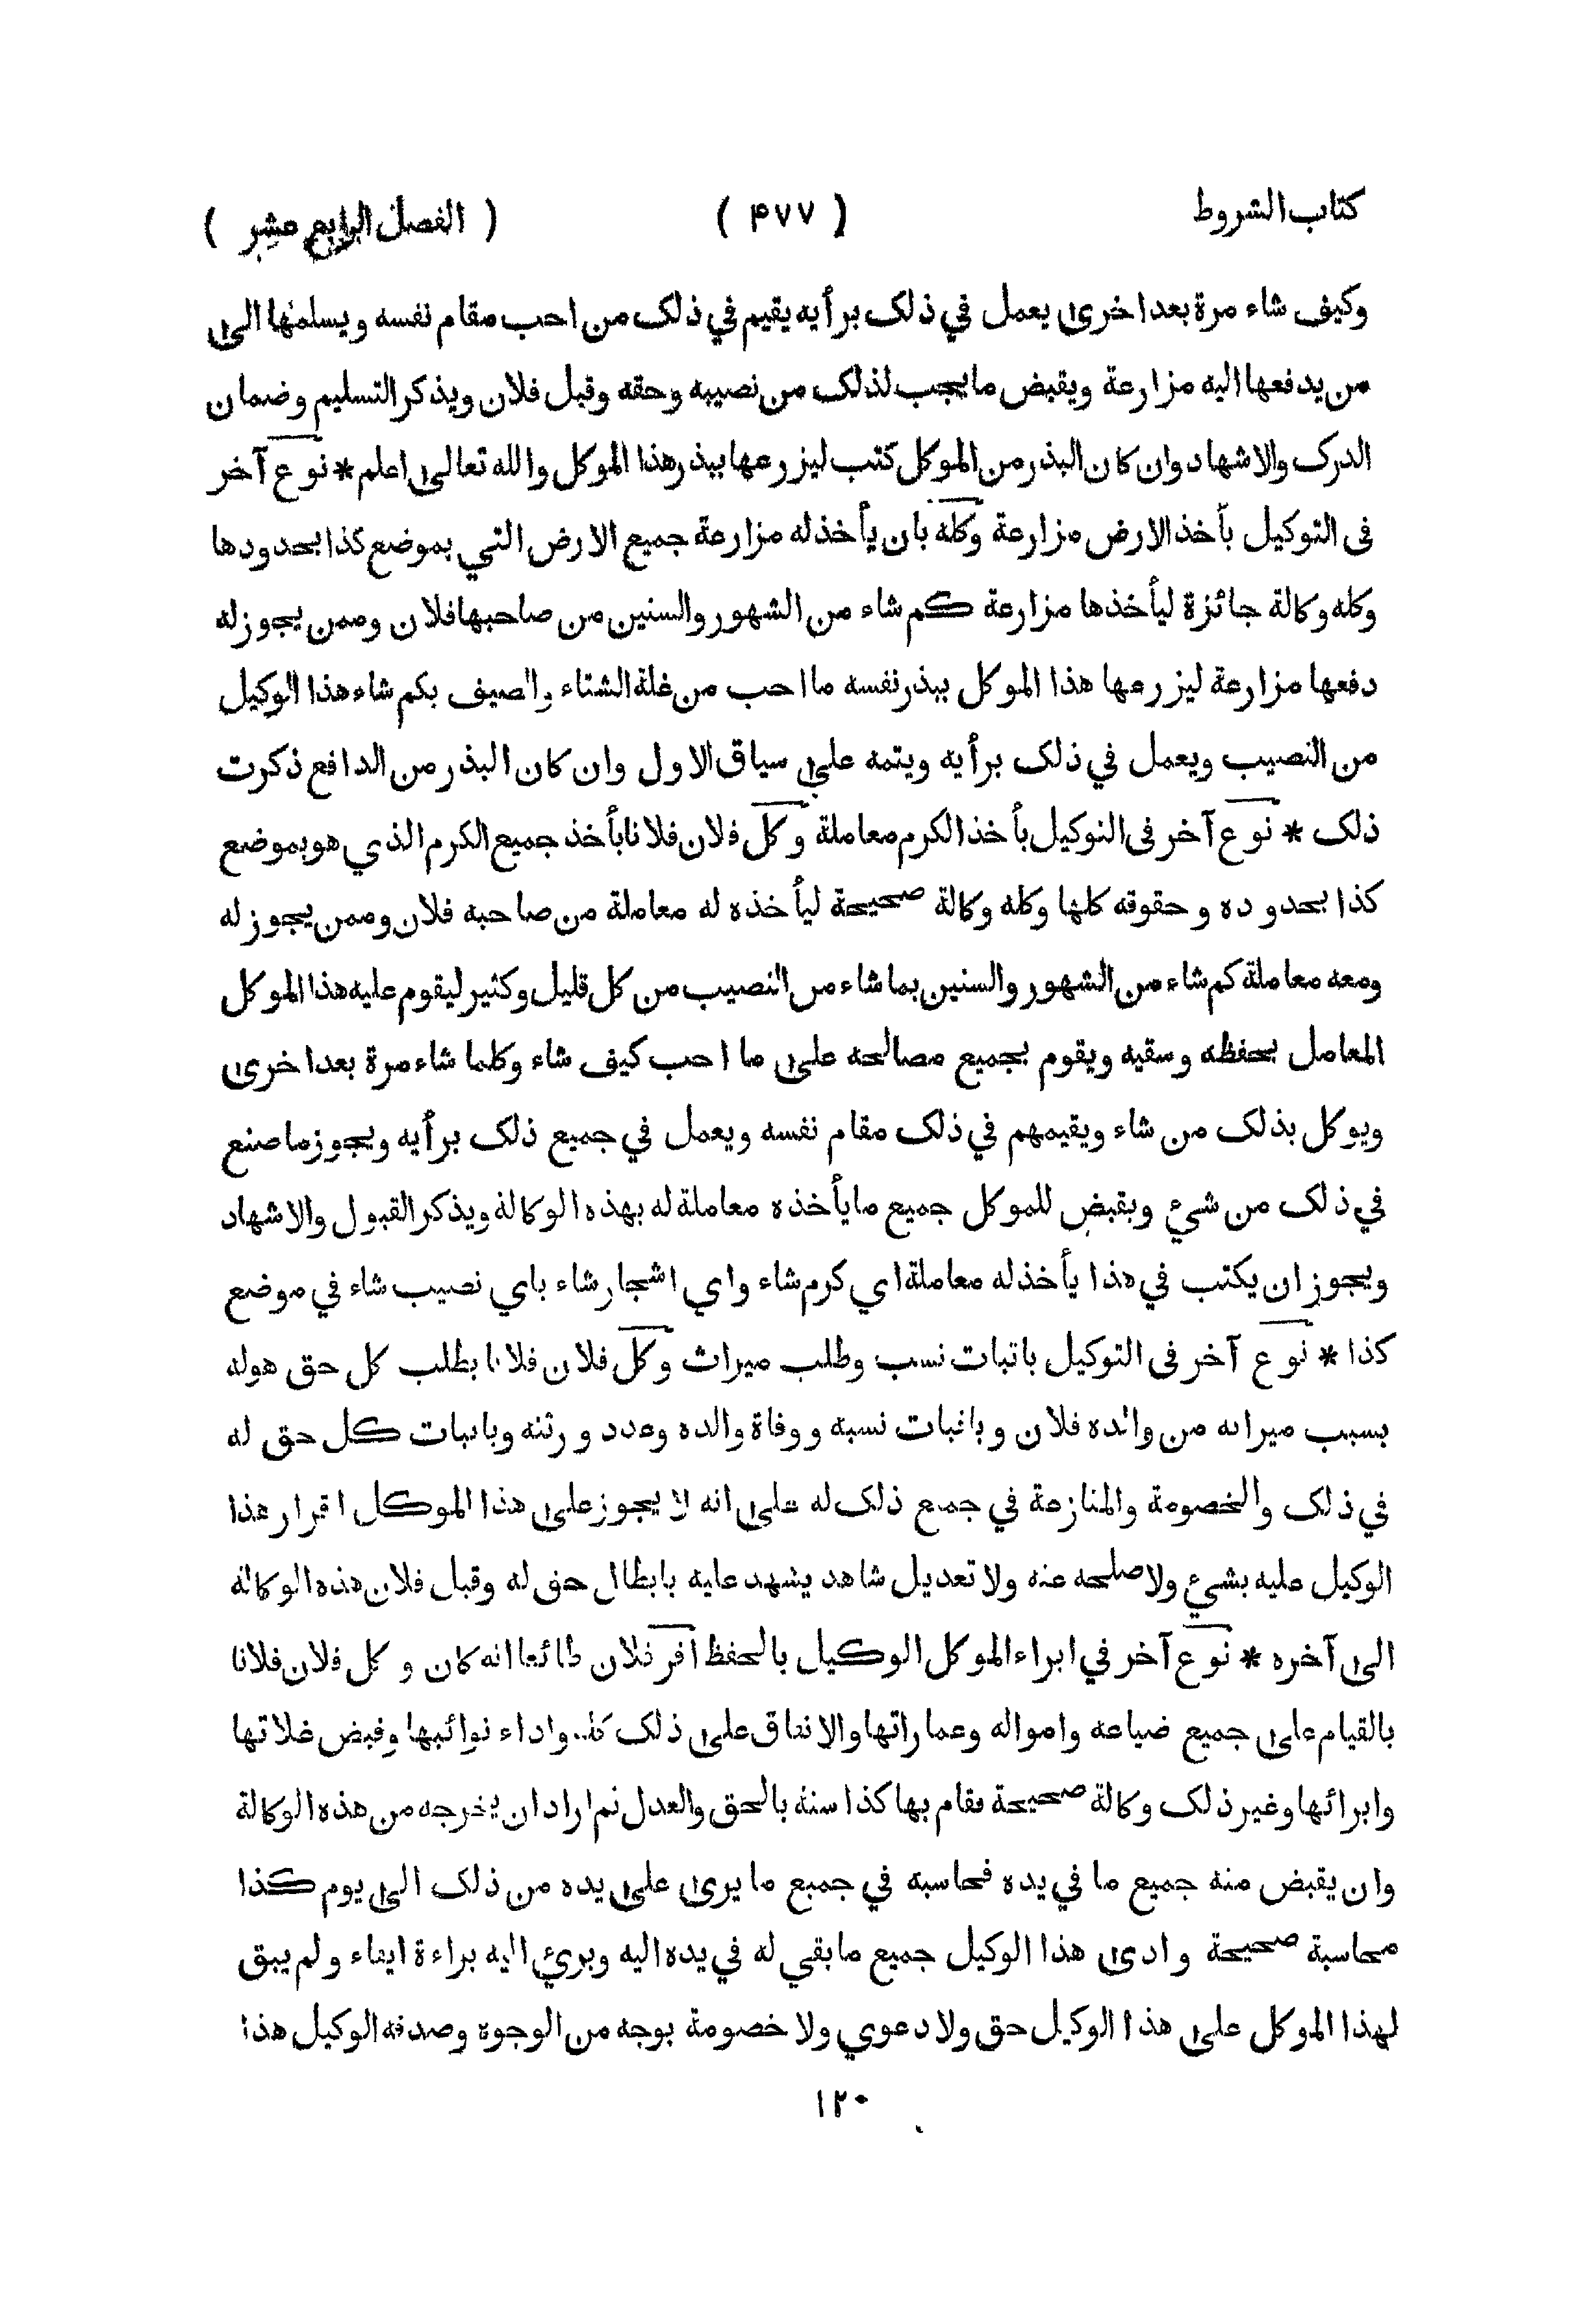 كتاب الشروط ( ۴۷۷ ) ( الفصل الرابع عشر )
وكيف شاء مرة بعد اخرى يعمل في ذلک برأيه يقيم في ذلک من احب مقام نفسه ويسلمها الى
من يدفعها اليه مزارعة ويقبض ما يجب لذلک من نصيبه وحقه وقبل فلان ويذكر التسليم وضمان
الدرک والاشهاد وان كان البذر من الموكل كتب ليزرعها ببذر هذا الموكل والله تعالى اعلم * نوع آخر
فى التوكيل بأخذ الارض مزارعة وكله بان يأخذ له مزارعة جميع الارض التي بموضع كذا بحدودها
وكله وكالة جائزة ليأخذها مزارعة كم شاء من الشهور والسنين من صاحبها فلان وممن يجوز له
دفعها مزارعة ليزرعها هذا الموكل ببذر نفسه ما احب من غلة الشتاء والصيف بكم شاء هذا الوكيل
من النصيب ويعمل في ذلک برأيه ويتمه على سياق الاول وان كان البذر من الدافع ذكرت
ذلک * نوع آخر فى التوكيل بأخذ الكرم معاملة وكل فلان فلانا بأخذ جميع الكرم الذي هو بموضع
كذا بحدوده وحقوقه كلها وكله وكالة صحيحة ليأخذه له معاملة من صاحبه فلان وممن يجوز له
ومعه معاملة كم شاء من الشهور والسنين بما شاء من النصيب من كل قليل وكثير ليقوم عليه هذا الموكل
المعامل بحفظه وسقيه ويقوم بجميع مصالحه على ما احب كيف شاء وكلما شاء مرة بعد اخرى
ويوكل بذلک من شاء ويقيمهم في ذلک مقام نفسه ويعمل في جميع ذلک برأيه ويجوز ما صنع
في ذلک من شيء ويقبض للموكل جميع ما يأخذه معاملة له بهذه الوكالة ويذكر القبول والاشهاد
ويجوز ان يكتب في هذا يأخذ له معاملة اي كرم شاء واي اشجار شاء باي نصيب شاء في موضع
كذا * نوع آخر فى التوكيل باثبات نسب وطلب ميراث وكل فلان فلانا بطلب كل حق هو له
بسبب ميراثه من والده فلان وباثبات نسبه ووفاة والده وعدد ورثته وباثبات كل حق له
في ذلک والخصومة والمنازعة في جميع ذلک له على انه لا يجوز على هذا الموكل اقرار هذا
الوكيل عليه بشيء ولا صلحه عنه ولا تعديل شاهد يشهد عليه بابطال حق له وقبل فلان هذه الوكالة
الى آخره * نوع آخر في ابراء الموكل الوكيل بالحفظ اقر فلان طائعا انه كان وكل فلان فلانا
بالقيام على جميع ضياعه وامواله وعماراتها والانفاق على ذلک كله واداء نوائبها وقبض غلاتها
وابرائها وغير ذلک وكالة صحيحة فقام بها كذا سنة بالحق والعدل ثم اراد ان يخرجه من هذه الوكالة
وان يقبض منه جميع ما في يده فحاسبه في جميع ما يرى على يده من ذلک الى يوم كذا
محاسبة صحيحة وادى هذا الوكيل جميع ما بقي له في يده اليه وبرئ اليه براءة ايفاء ولم يبق
لهذا الموكل على هذا الوكيل حق ولا دعوي ولا خصومة بوجه من الوجوه وصدقه الوكيل هذا
١٢٠